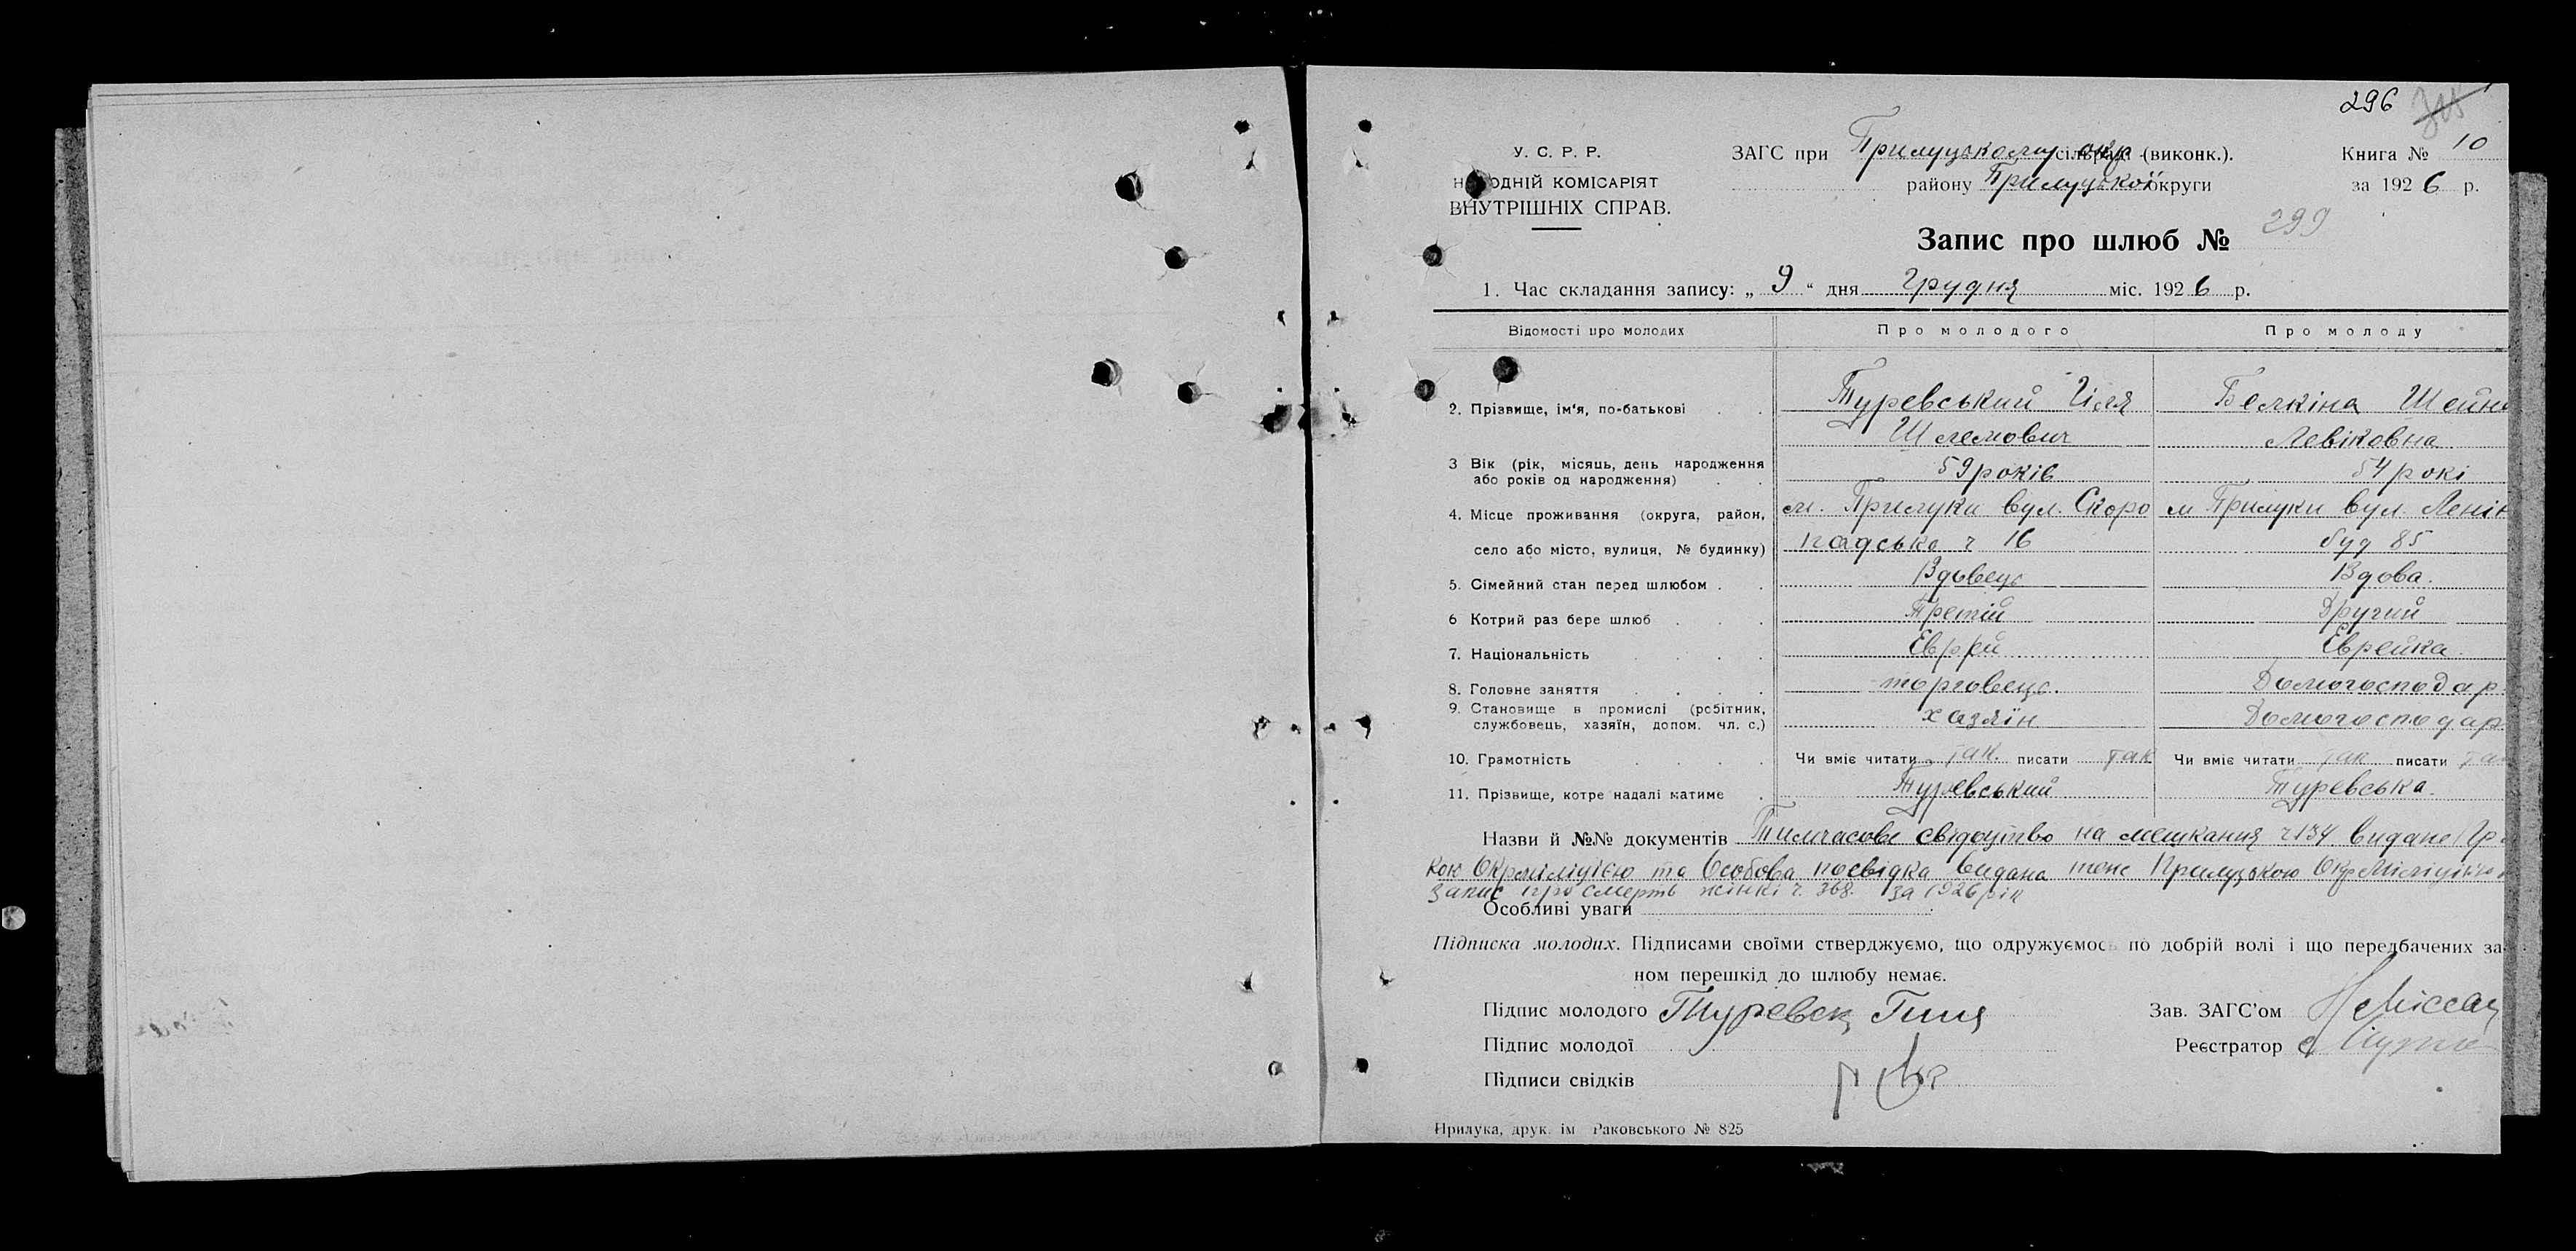 296
У. С. Р. Р.
ЗАГС при Прилуцькому окр сільраді (виконк.).
Книга № 10
НАРОДНІЙ КОМІСАРІЯТ
району Прилуцької округи
за 1926 р.
ВНУТРІШНІХ СПРАВ.
Запис про шлюб № 299
1. Час складання запису: „ 9 “ дня Грудня міс. 1926 р.
Відомості про молодих
Про молодого
Про молоду
2. Прізвище, ім'я, по-батькові
Туревський Гіля
Белкіна Шейна
Шлемович
Левіковна
3 Вік (рік, місяць, день народження
або років од народження)
59 років
54 рокі
4. Місце проживання (округа, район,
м. Прилука вул. Скоро
м Прилуки вул Ленін
село або місто, вулиця, № будинку)
падська ч 16
буд 85
5. Сімейний стан перед шлюбом
Вдовець
Вдова.
6 Котрий раз бере шлюб
Третій
Другий
7. Національність
Еврей
Еврейка.
8. Головне заняття
торговець.
Домогосподар
9. Становище в промислі (робітник,
службовець, хазяїн, допом. чл. с.)
хазяїн
Домогосподар.
10. Грамотність
Чи вміє читати так. писати так
Чи вміє читати так писати та
11. Прізвище, котре надалі матиме
Туревський
Туревська.
Назви й №№ документів Тимчасове свідоцтво на мешкання ч 134 видане
кою Окрміліцією та Особова посвідка видана теж Прилуцькою ОкрМіліцією
запис про смерть жінкі ч. 368. за 1926 рік
Особливі уваги
Підписка молодих. Підписами своїми стверджуємо, що одружуємось по добрій волі і що передбачених за
ном перешкід до шлюбу немає.
Підпис молодого Туревск Гиля
Зав. ЗАГС'ом
Підпис молодої
Реєстратор
Підписи свідків
Прилука, друк. ім Раковського № 825